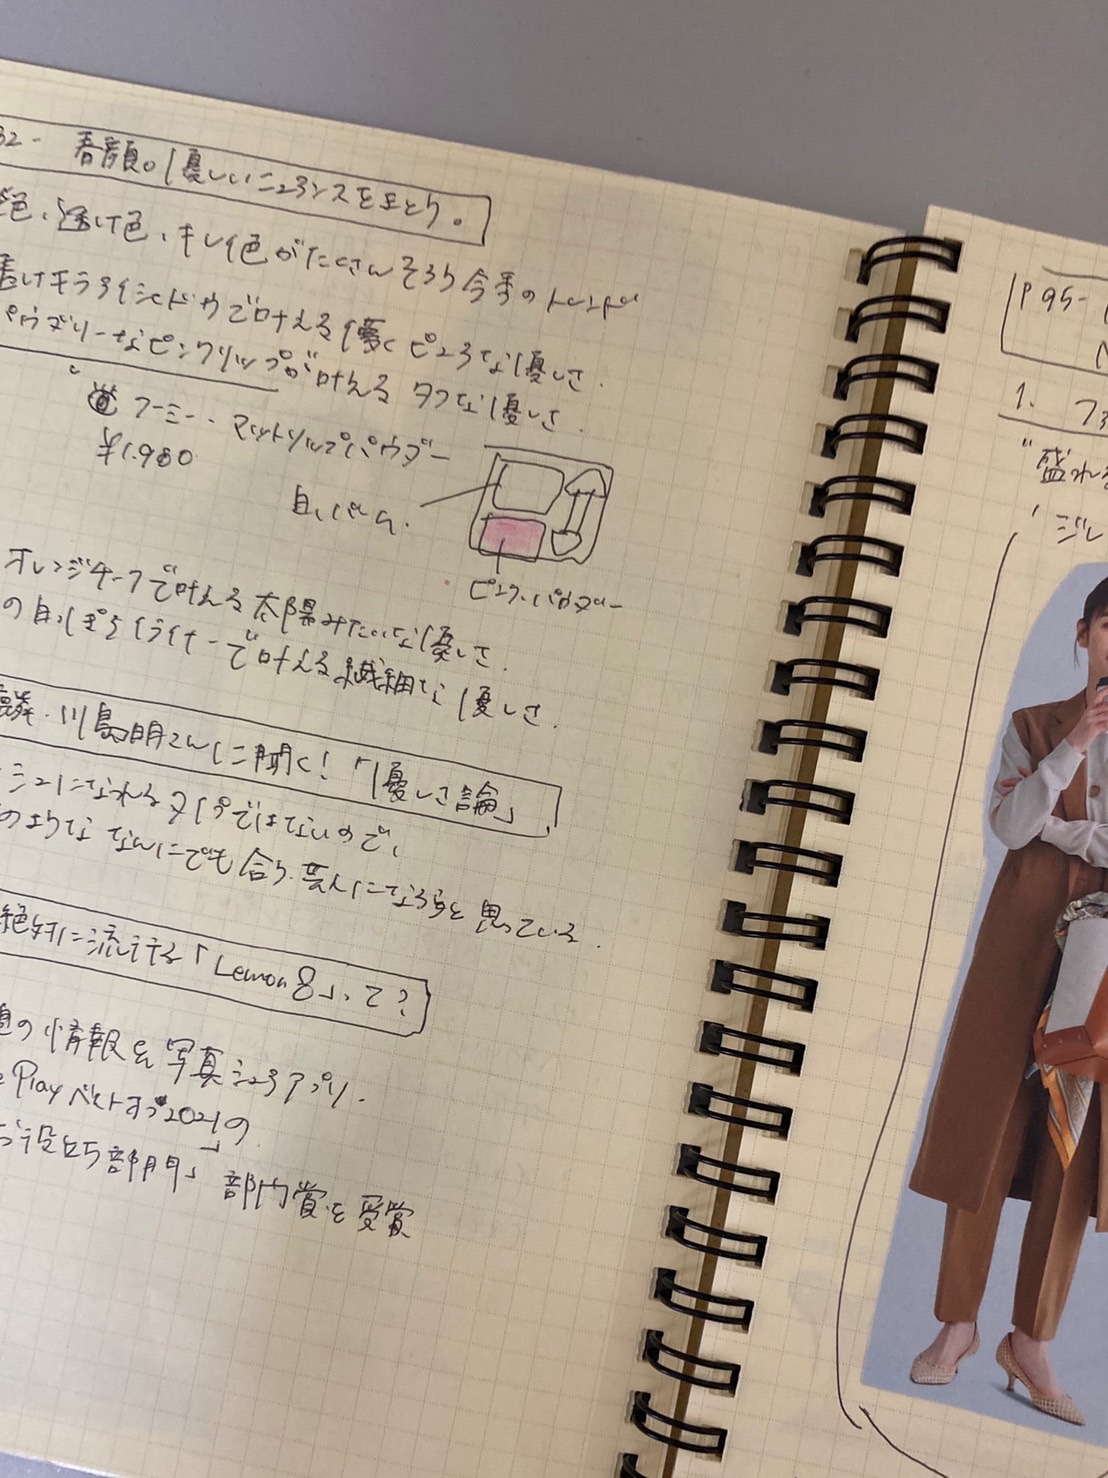 32- 春顔。優しいニュアンスをまとう。
色、透け色、キレイ色がたくさんそろう今季のトレンド
透けキラアイシャドウで叶える儚くピュアな優しさ.
パウダリーなピンクリップが叶えるタフな優しさ.
フーミー. マットリップパウダー
¥1.980
白、バーム.
ピンク、パウダー
オレンジチークで叶える太陽みたいな優しさ.
の白っぽライナーで叶える繊細な優しさ.
麒麟・川島明さんに聞く!「優しさ論」
になれるタイプではないので、
のような なんにでも合う芸人になろうと思っている.
絶対に流行する「Lemon8」って?
の情報を写真シェアアプリ.
Play ベストオブ2021」の
お役立ち部門」部門賞を受賞
P95-
1.
"盛れる